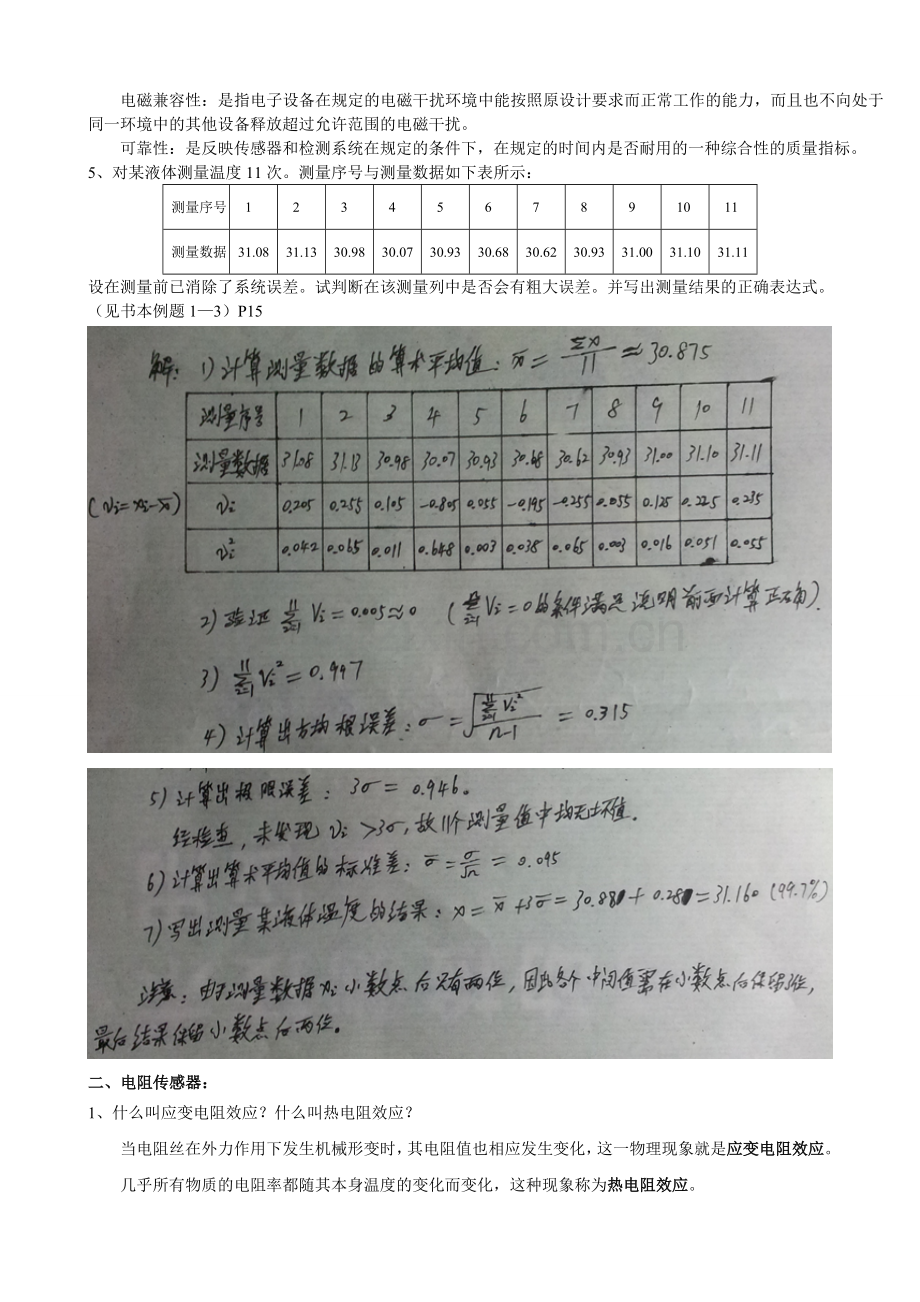 电磁兼容性：是指电子设备在规定的电磁干扰环境中能按照原设计要求而正常工作的能力，而且也不向处于
同一环境中的其他设备释放超过允许范围的电磁干扰。
可靠性：是反映传感器和检测系统在规定的条件下，在规定的时间内是否耐用的一种综合性的质量指标。
5、对某液体测量温度 11 次。测量序号与测量数据如下表所示：
测量序号 1 2 3 4 5 6 7 8 9 10 11
测量数据 31.08 31.13 30.98 30.07 30.93 30.68 30.62 30.93 31.00 31.10 31.11
设在测量前已消除了系统误差。试判断在该测量列中是否会有粗大误差。并写出测量结果的正确表达式。
（见书本例题 1—3）P15
解：1) 计算测量数据的算术平均值：x̄ = Σx/11 ≈ 30.875
测量序号 1 2 3 4 5 6 7 8 9 10 11
测量数据 31.08 31.13 30.98 30.07 30.93 30.68 30.62 30.93 31.00 31.10 31.11
(vi=xi-x̄) vi 0.205 0.255 0.105 -0.805 0.055 -0.195 -0.255 0.055 0.125 0.225 0.235
vi² 0.042 0.065 0.011 0.648 0.003 0.038 0.065 0.003 0.016 0.051 0.055
2) 验证 Σ(i=1→11) Vi = 0.005 ≈ 0 (Σ(i=1) Vi = 0 的条件满足说明前面计算正确).
3) Σ(i=1→11) Vi² = 0.997
4) 计算出方均根误差：σ = √(Σ(i=1→11) Vi²/(n-1)) = 0.315
5) 计算出极限误差：3σ = 0.946。
经检查，未发现 Vi >3σ，故11个测量值中均无坏值.
6) 计算出算术平均值的标准差：σ̄ = σ/√n = 0.095
7) 写出测量某液体温度的结果：x = x̄ + 3σ̄ = 30.880 + 0.280 = 31.160 (99.7%)
注意：由于测量数据xi小数点后只有两位，因此各个中间值需在小数点后保留3位，
最后结果保留小数点后两位。
二、电阻传感器：
1、什么叫应变电阻效应？什么叫热电阻效应？
当电阻丝在外力作用下发生机械形变时，其电阻值也相应发生变化，这一物理现象就是应变电阻效应。
几乎所有物质的电阻率都随其本身温度的变化而变化，这种现象称为热电阻效应。